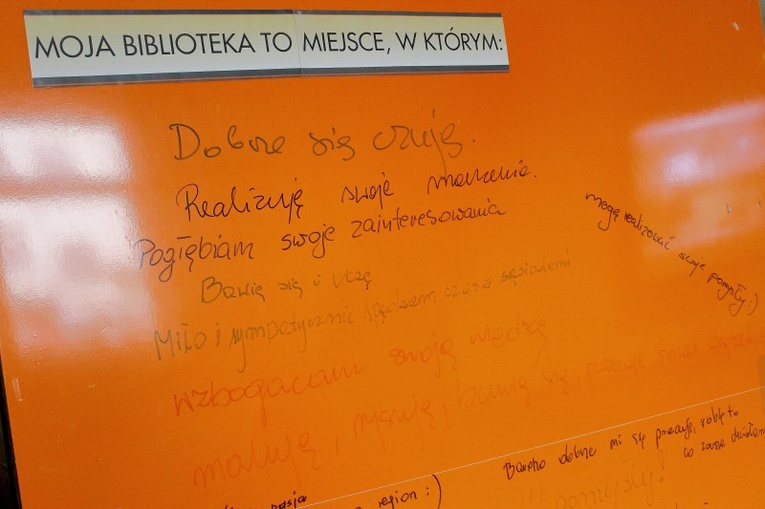 MOJA BIBLIOTEKA TO MIEJSCE, W KTÓRYM:
Dobrze się czuję.
Realizuję swoje marzenia.
Pogłębiam swoje zainteresowania
mogę realizować swoje pomysły :)
Bawię się i uczę
Miło i sympatycznie spędzam czas z sąsiadami
wzbogacam swoją wiedzę
maluję, rysuję, bawię się,
Bardzo dobrze mi się pracuje, robię to
co zawsze chciałam
region :)